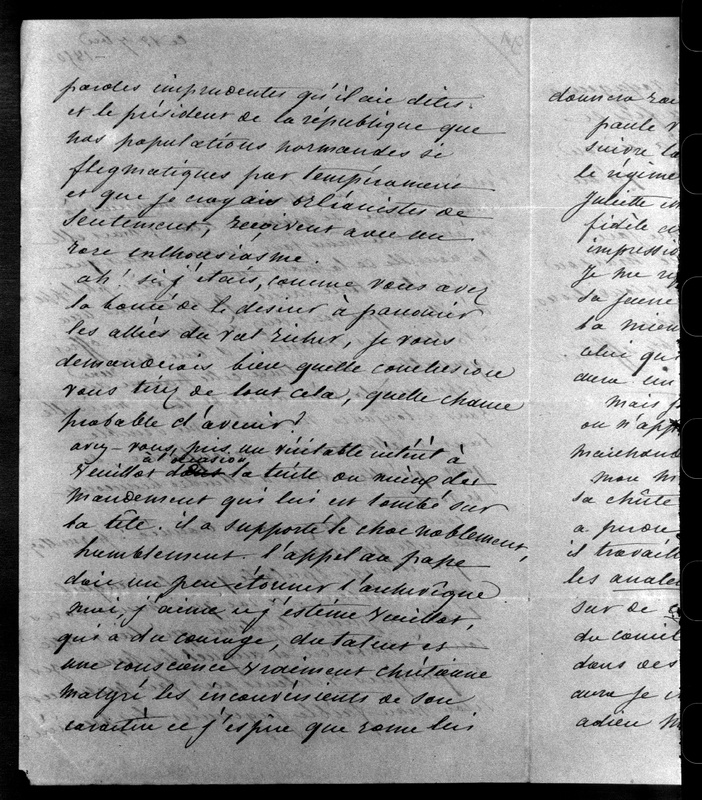 paroles imprudentes qu'il aie dites.
et le président de la république que
nos populations normandes si
flegmatiques par tempérament
et que je croyais orléanistes de
sentiment, reçoivent avec un
rare enthousiasme.
ah! si j'étais, comme vous avez
la bonté de le désirer à parcourir
les allées du Val Richer, je vous
demanderais bien quelle conclusion
vous tirez de tout cela, quelle chance
probable d'avenir?
avez-vous pris un véritable intérêt à
à l'occasion
Veuillot de la tuile ou mieux des
mandement qui lui est tombé sur
la tête. il a supporté le choc noblement,
humblement. l'appel au pape
doit un peu étonner l'archevêque
moi, j'aime et j'estime Veuillot,
qui a du courage, du talent et
une conscience vraiment chrétienne
malgré les inconvénients de son
caractère et j'espère que rome lui
donnera
suivre la
le régime
Juliette
fidèle
Je me
sa
la mien
celui qui
aura un
mais j
on n'app
marchand
mon m
sa chûte
a perdu
il travaill
les
sur de
du comit
dans des
aura je
adieu M